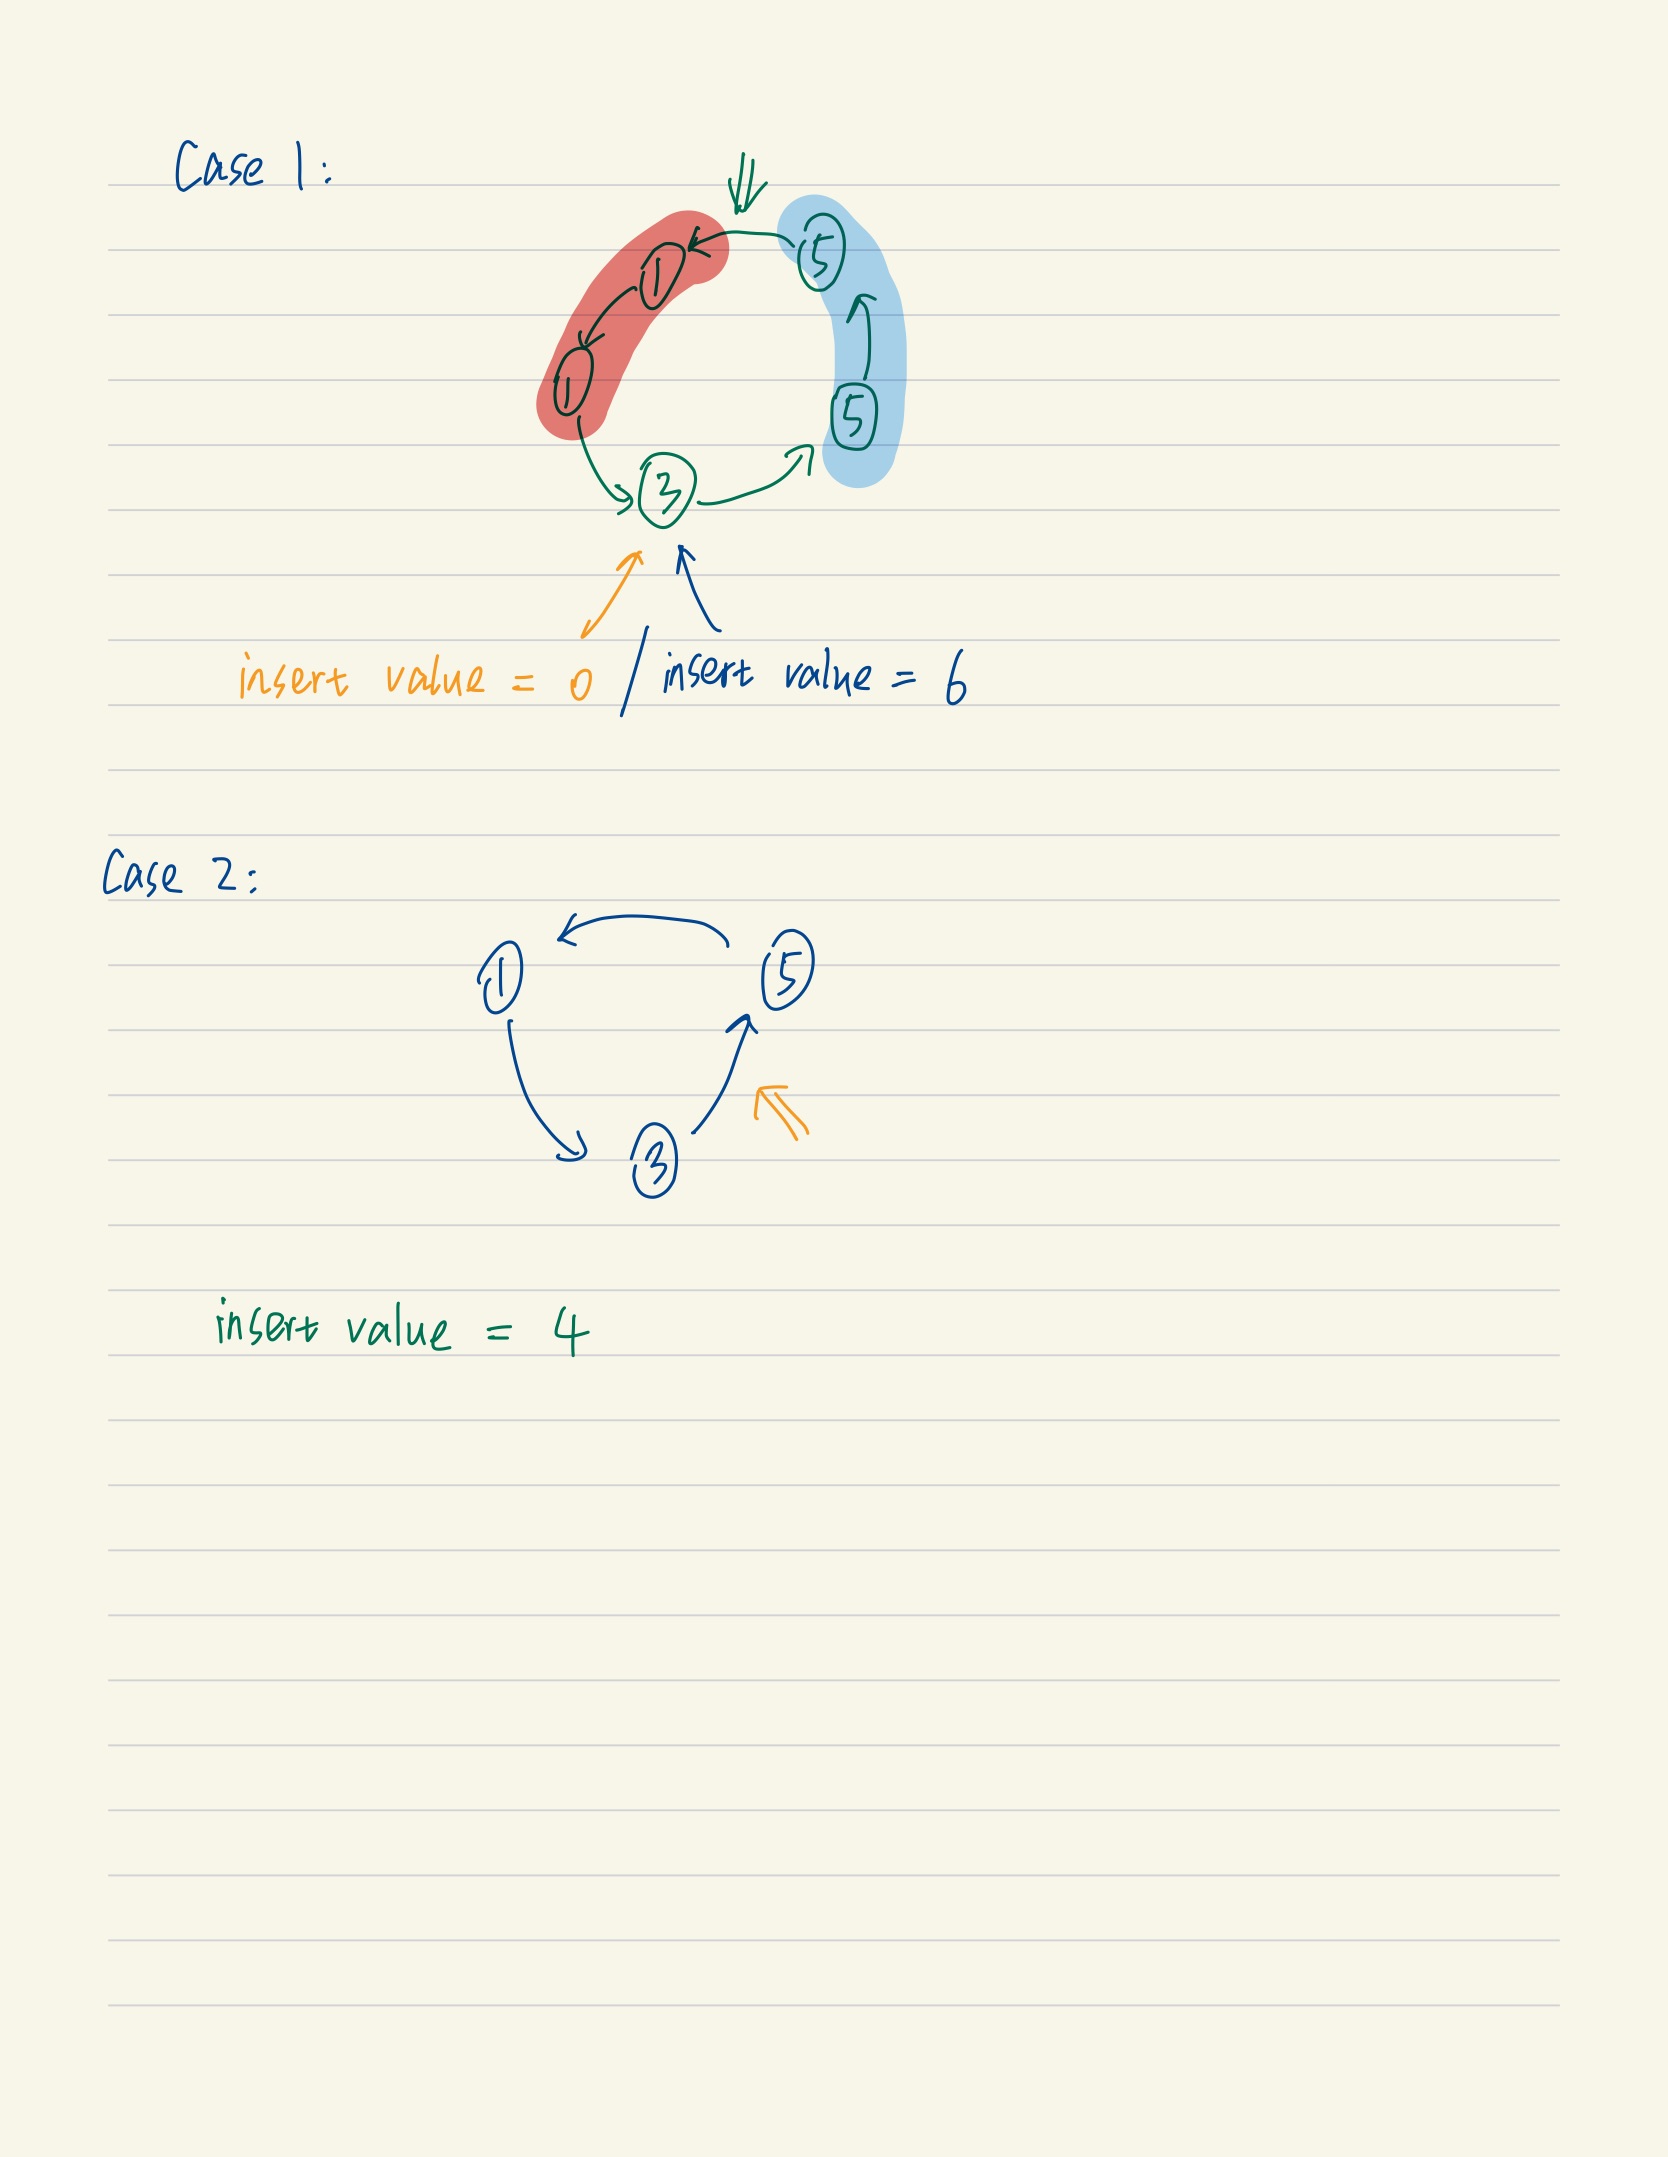 Case 1:
5
1
1
5
3
insert value = 0 / insert value = 6
Case 2:
1 5
3
insert value = 4